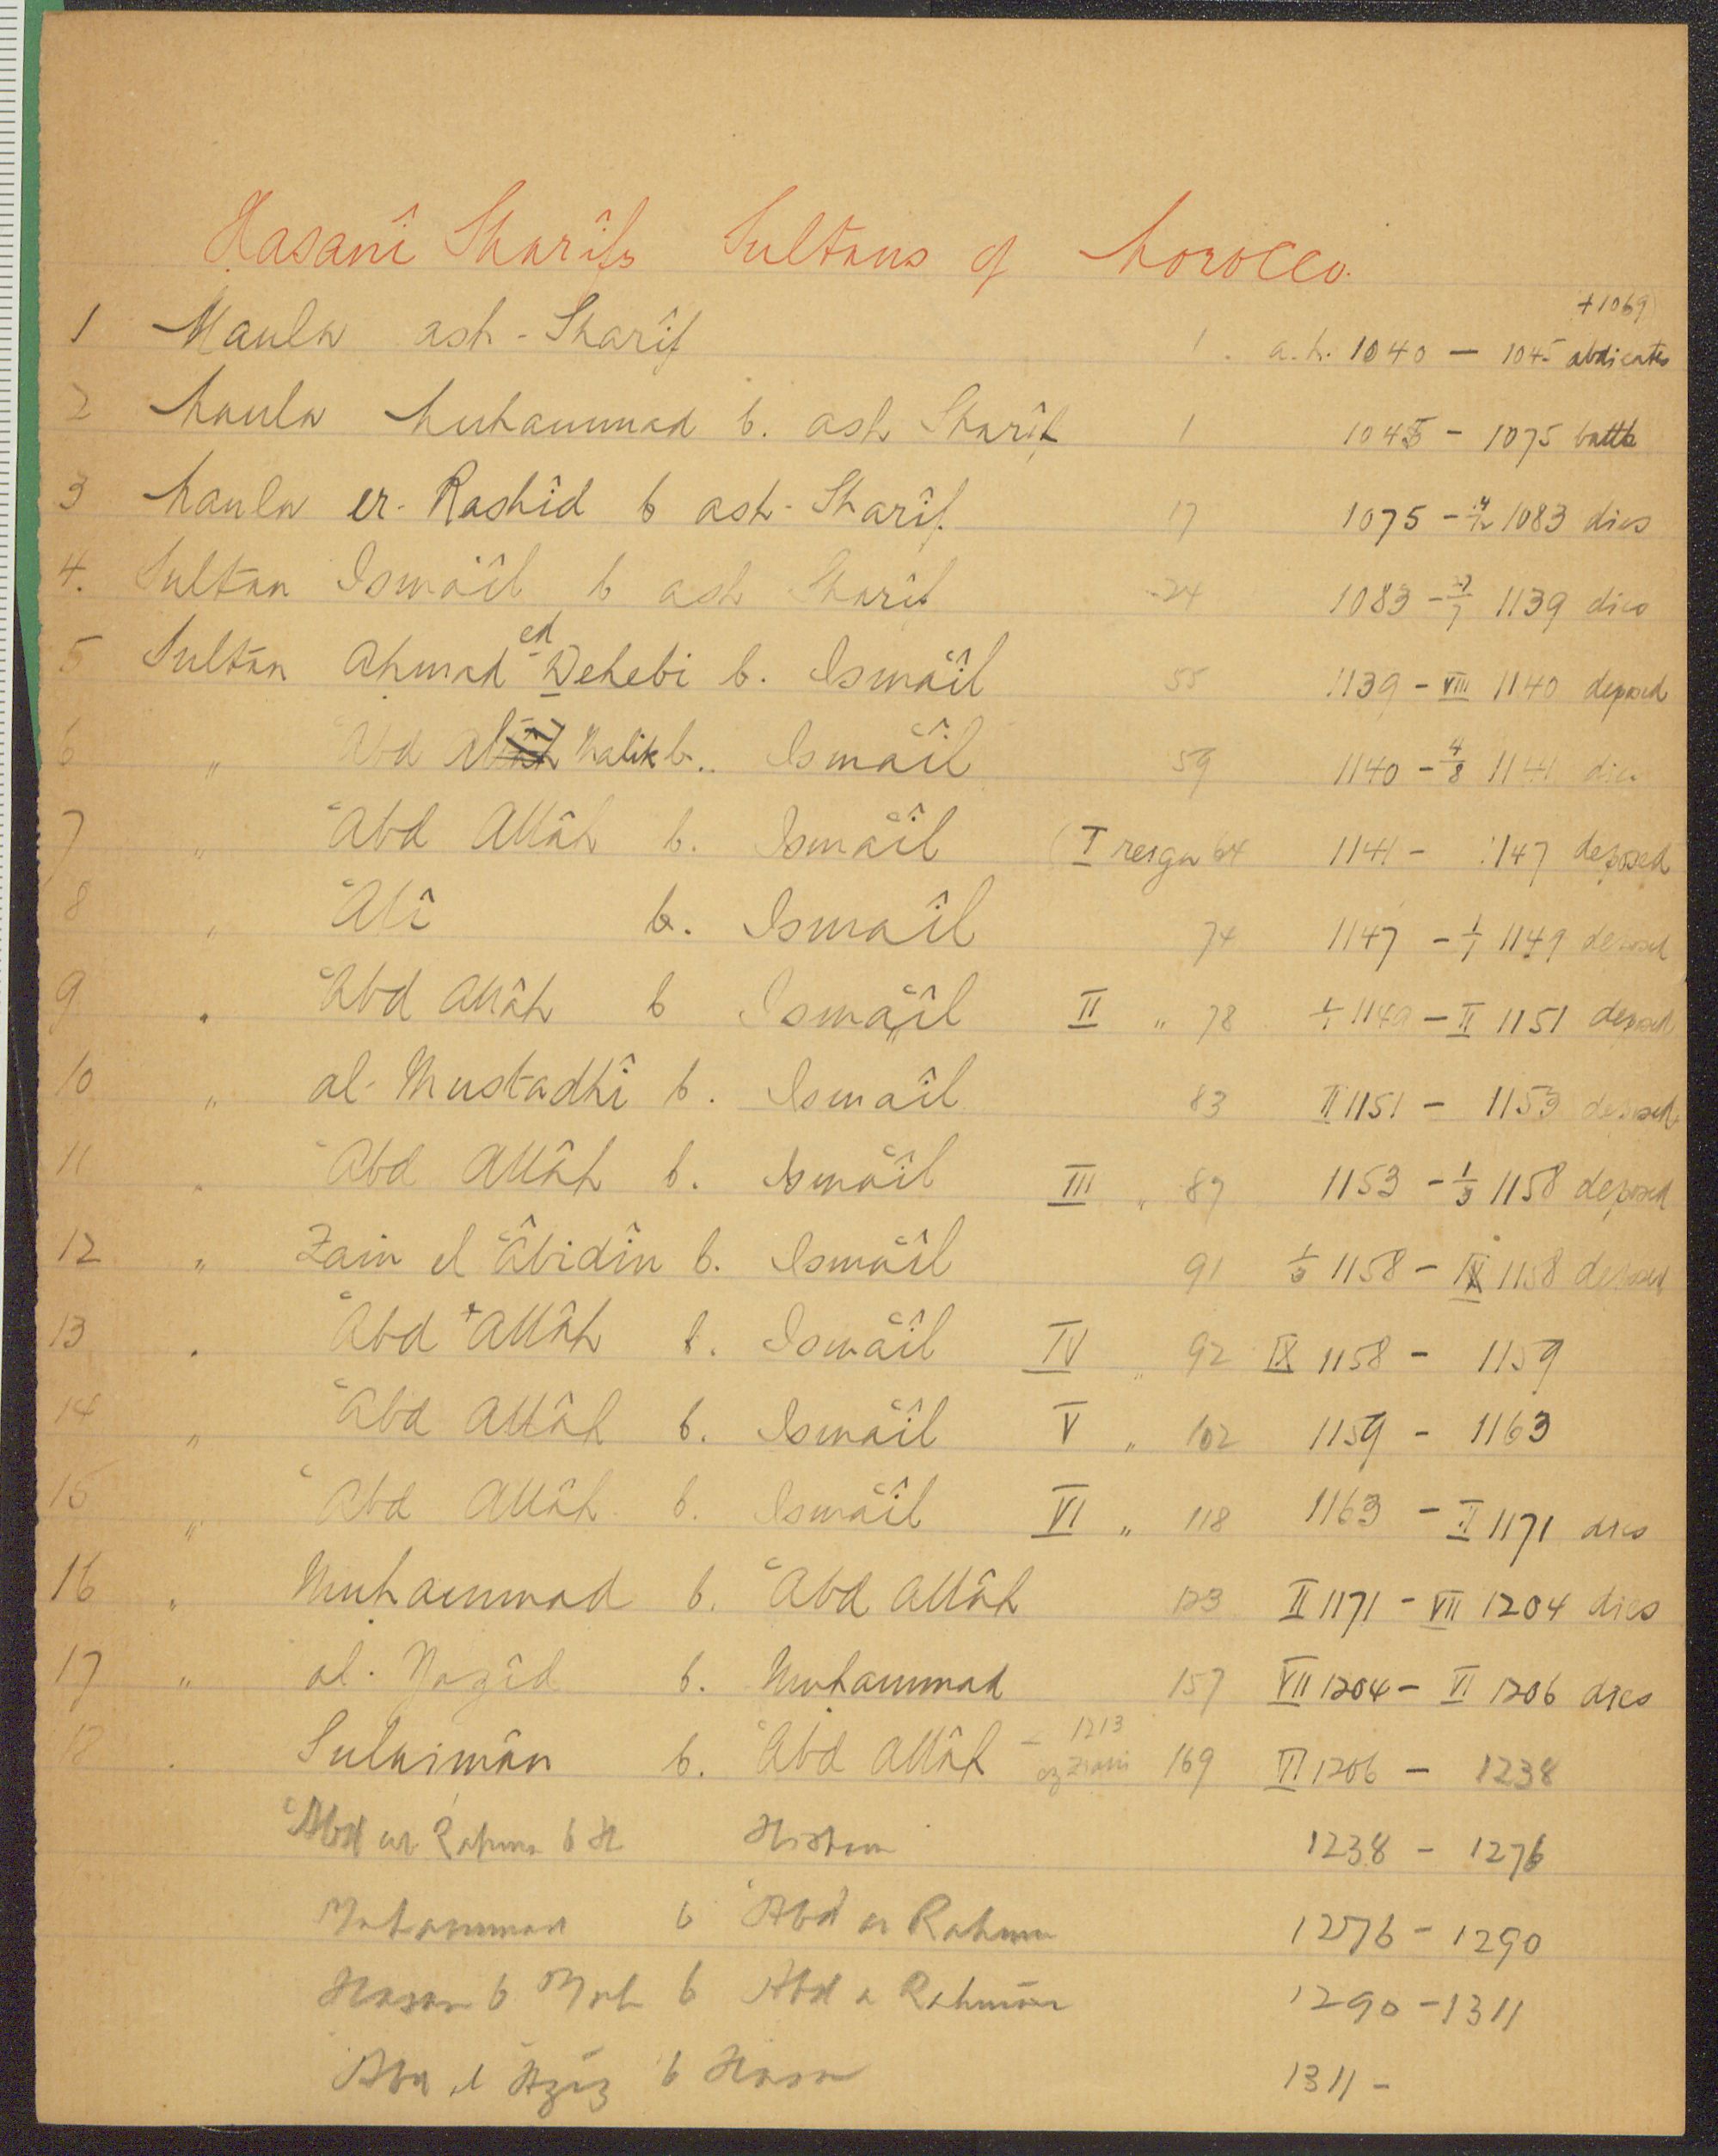 Hasanî Sharîfs Sultans of Morocco.
+1069
1 Maula ash-Sharîf 1. a.h. 1040 — 1045 abdicates
2 Maula Muhammad b. ash Sharîf 1 1045 - 1075 battle
3 Maula er-Rashîd b ash-Sharîf. 17 1075 - 1083 dies
4. Sultan Ismâʿîl b ash Sharîf 24 1083 - 27/7 1139 dies
5 Sultân Ahmad ed Dehebi b. Ismâʿîl 55 1139 - VIII 1140 deposed
6 " ʿAbd al Malik b. Ismâʿîl 59 1140 - 4/8 1141 dies
7 " ʿAbd Allâh b. Ismâʿîl (I reign 64 1141 - 1147 deposed
8 " ʿAlî b. Ismaîl 74 1147 - 1/1 1149 deposed
9 " ʿAbd Allâh b Ismâʿîl II " 78 1/1 1149 - II 1151 deposed
10 " al-Mustadhî b. Ismaîl 83 II 1151 - 1153 deposed
11 " ʿAbd Allâh b. Ismâʿîl III " 87 1153 - 1/3 1158 deposed
12 " Zain el ʿÂbidîn b. Ismâʿîl 91 1/3 1158 - IX 1158 deposed
13 " ʿAbd Allâh b. Ismâʿîl IV " 92 IX 1158 - 1159
14 " ʿAbd Allâh b. Ismâʿîl V " 102 1159 - 1163
15 " ʿAbd Allâh b. Ismâʿîl VI " 118 1163 - II 1171 dies
16 " Muhammad b. ʿAbd Allâh 123 II 1171 - VII 1204 dies
17 " al-Yazîd b. Muhammad 157 VII 1204 - VI 1206 dies
18 " Sulaimân b. ʿAbd Allâh - 1213 ez Ziani 169 VI 1206 - 1238
ʿAbd ur Rahman b H Hisham 1238 - 1276
Muhammad b ʿAbd ur Rahman 1276 - 1290
Hasan b Muh b Abd a Rahmân 1290 - 1311
Abd el Azîz b Hasan 1311 -